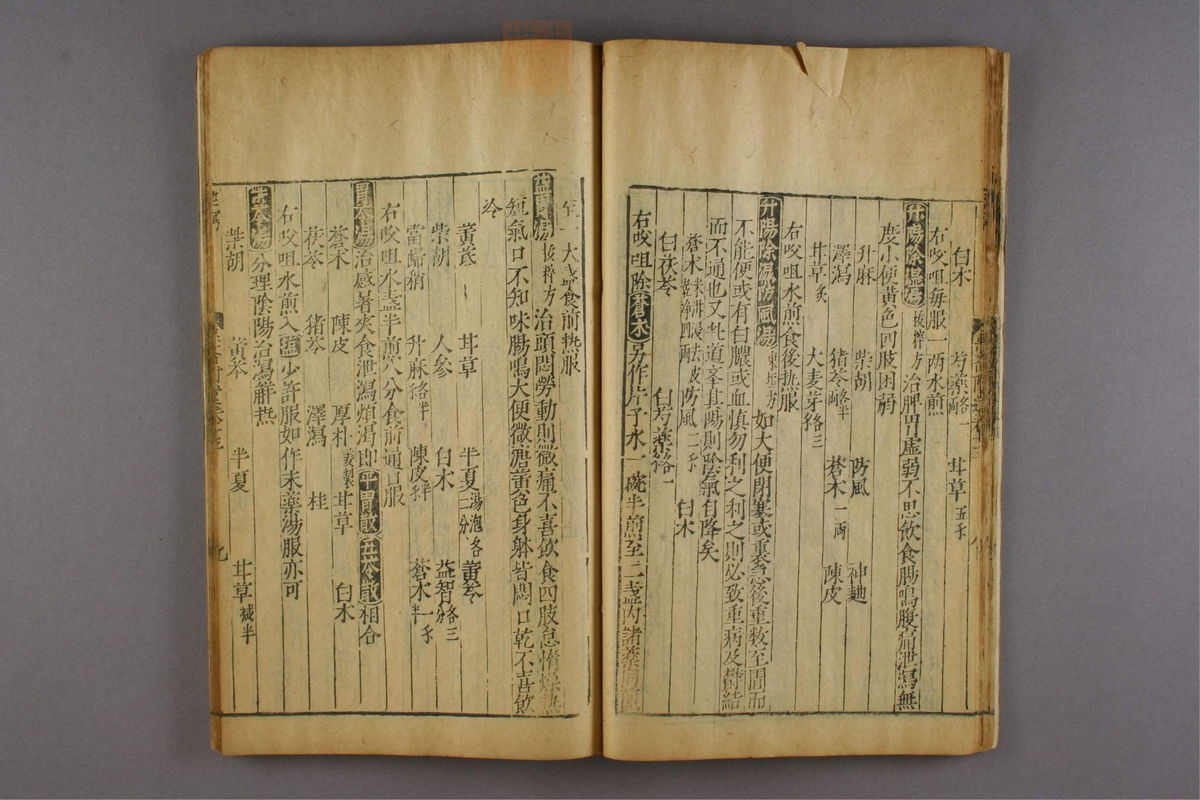 白朮 芍藥各一兩 甘草五錢
右㕮咀每服一兩水煎
升陽除濕湯 拔粹方 治脾胃虛弱不思飲食腸鳴腹痛泄瀉無
度小便黃色四肢困弱
升麻 柴胡 防風 神麯
澤瀉 猪苓各半兩 蒼朮一兩 陳皮
甘草炙 大麦芽各三
右㕮咀水煎食後热服
升陽除濕防風湯 東垣方 如大便閉塞或裏急後重数至圊而
不能便或有白膿或血慎勿利之利之則必致重病及欝結
而不通也又此道
其陽則陰氣自降矣
蒼朮米泔浸去皮 四兩 防風二錢 白朮
白茯苓 白芍藥各一
右㕮咀除蒼朮另作片子水一碗半煎至二盞內諸藥同煎
至一大盞食前热服
益胃湯 拔粹方 治頭悶勞動則微痛不喜飲食四肢怠惰燥热
短氣口不知味腸鳴大便微溏黃色身躰皆悶口乾不喜飲
冷
黃芪 甘草 半夏湯泡各二分 黃芩
柴胡 人參 白朮 益智各三分
當歸稍 升麻各半 陳皮 蒼朮一錢半
右㕮咀水盞半煎八分食前通口服
胃苓湯 治感暑夾食泄瀉煩渴即平胃散五苓散相合
蒼朮 陳皮 厚朴薑製 甘草 白朮
茯苓 猪苓 澤瀉 桂
右㕮咀水煎入盬少許服如作末藥湯服亦可
柴苓湯 分理陰陽治瀉觧热
柴胡 黃芩 半夏 甘草减半
九